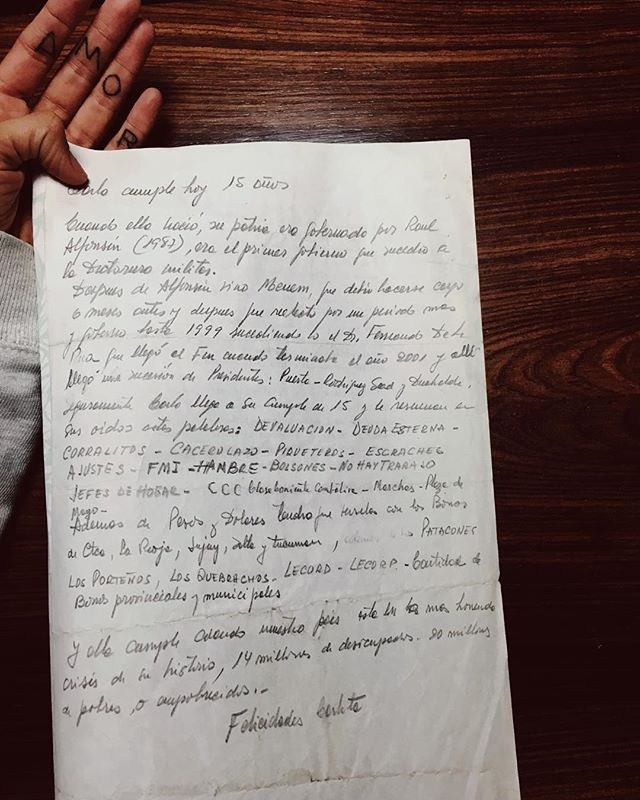 AMOR
Carla cumple hoy 15 años
Cuando ella nació, su patria era gobernada por Raul
Alfonsin (1987), era el primer gobierno que sucedio a
la Dictadura militar.
Despues de Alfonsin vino Menem, que debio hacerse cargo
6 meses antes y despues que reelecto por un periodo mas
y gobierno hasta 1999 sucediendolo el Dr. Fernando De la
Rua que llegó el fin cuando terminaba el año 2001 y allí
llegó una sucesión de Presidentes: Puerta - Rodriguez Saa y Duhalde.
Seguramente Carla llega a su cumple de 15 y le resuenan en
sus oidos estas palabras: DEVALUACION - DEUDA EXTERNA -
CORRALITOS - CACEROLAZO - PIQUETEROS - ESCRACHES
AJUSTES - FMI - HAMBRE - BOLSONES - NO HAY TRABAJO
JEFES DE HOGAR - CCC Clasista Combativa - Marchas - Plaza de
Mayo -
Ademas de Pesos y Dolares tendra que con los Bonos
de Ctes, La Rioja, Jujuy, Salta y Tucuman, PATACONES
LOS PORTEÑOS, LOS QUEBRACHOS - LECORD - LECORP. - Cantidad de
Bonos provinciales y municipales
Y ella cumple cuando nuestro pais esta en la mas honda
crisis de su historia, 14 millones de desocupados. 20 millones
de pobres, o empobrecidos. -
Felicidades Carlita